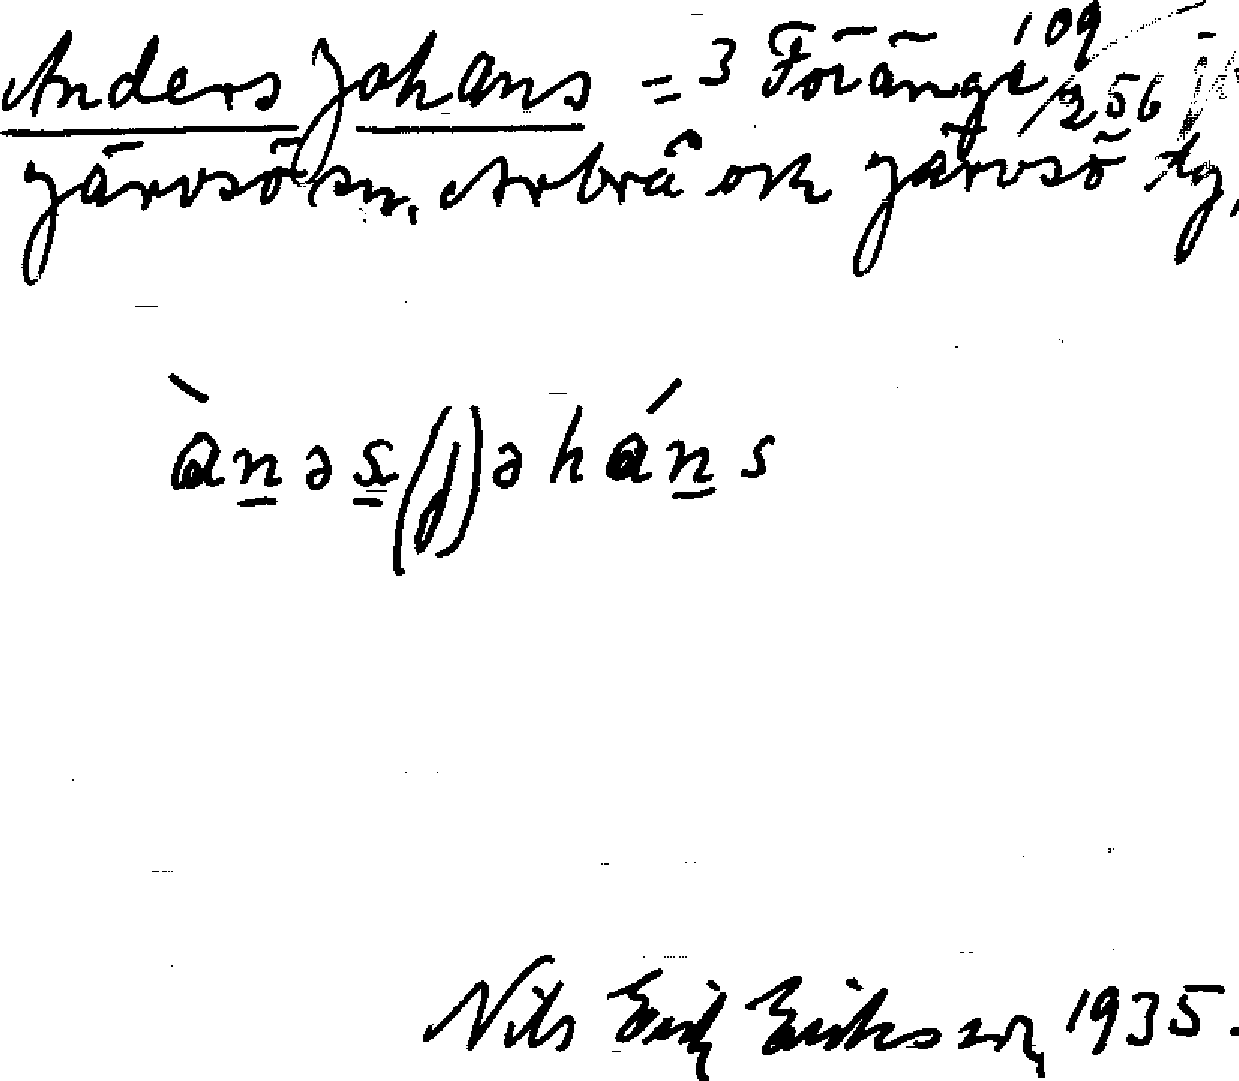 Anders Johans = 3 Föränge 109/256
Järvsö sn, Arbrå och Järvsö tg,
ànəs(j)əháns
Nils Erik Eriksson, 1935.